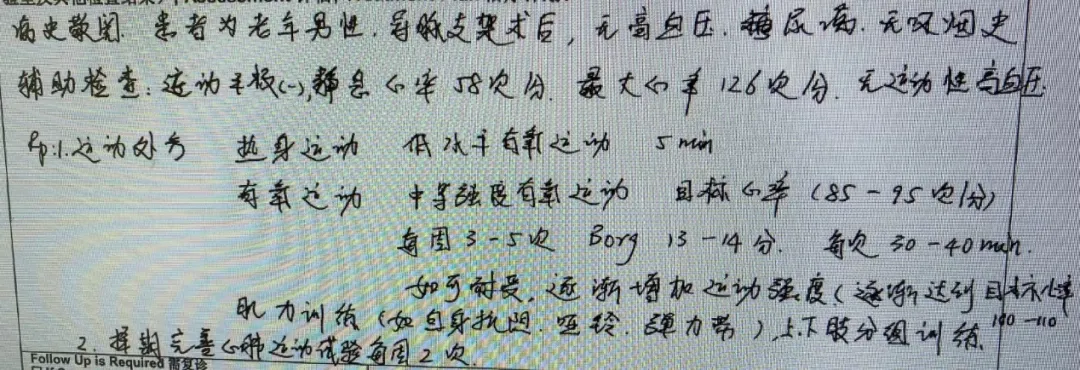 病史敬阅. 患者为老年男性. 冠脉支架术后, 无高血压. 糖尿病. 无吸烟史
辅助检查: 运动平板(-), 静息心率 58次/分. 最大心率 126次/分. 无运动性高血压
Rp: 1. 运动处方 热身运动 低水平有氧运动 5 min
有氧运动 中等强度有氧运动 目标心率 (85-95次/分)
每周 3-5次 Borg 13-14分. 每次 30-40 min.
如可耐受, 逐渐增加运动强度 (逐渐达到目标心率 100-110
肌力训练 (如自身抗阻. 哑铃. 弹力带) 上.下肢分组训练.
2. 择期完善心肺运动试验 每周2次
Follow Up is Required 需复诊